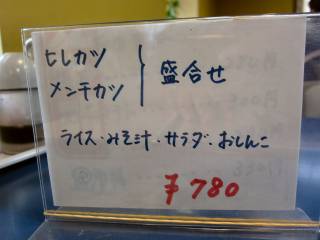 ヒレカツ
メンチカツ
盛合せ
ライス・みそ汁・サラダ・おしんこ
¥780